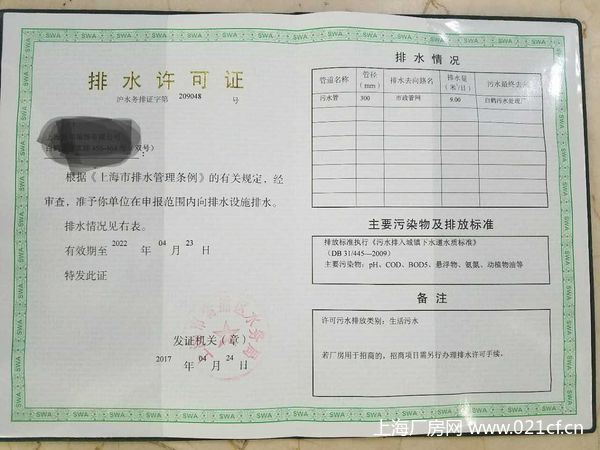 排水许可证
沪水务排证字第 209048 号
根据《上海市排水管理条例》的有关规定，经
审查，准予你单位在申报范围内向排水设施排水。
排水情况见右表。
有效期至 2022 年 04 月 23 日
特发此证
发证机关（章）
2017 年 04 月 24 日
排水情况
管道名称 管径(mm) 排水去向路名 排水量(米³/日) 污水最终去向
污水管 300 市政管网 9.00 白鹤污水处理厂
主要污染物及排放标准
排放标准执行《污水排入城镇下水道水质标准》
(DB 31/445—2009)
主要污染物：pH、COD、BOD5、悬浮物、氨氮、动植物油等
备注
许可污水排放类别：生活污水
若厂房用于招商的，招商项目需另行办理排水许可手续。
上海厂房网 www.021cf.cn